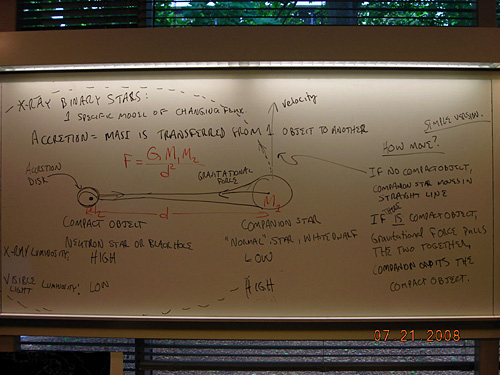 X-RAY BINARY STARS:
1 SPECIFIC MODEL OF CHANGING FLUX.
ACCRETION = MASS IS TRANSFERRED FROM 1 OBJECT TO ANOTHER
F = G M1 M2
d²
velocity
GRAVITATIONAL
FORCE
ACCRETION
DISK
M2
d
M1
COMPACT OBJECT
NEUTRON STAR OR BLACK HOLE
COMPANION STAR
"NORMAL" STAR, WHITE DWARF
X-RAY LUMINOSITY: HIGH LOW
VISIBLE
LIGHT LUMINOSITY: LOW HIGH
SIMPLE VERSION.
HOW MOVE?
IF NO COMPACT OBJECT,
COMPANION STAR MOVES IN
STRAIGHT LINE
IF THERE IS COMPACT OBJECT,
Gravitational Force PULLS
THE TWO TOGETHER,
COMPANION ORBITS THE
COMPACT OBJECT.
07 21 2008